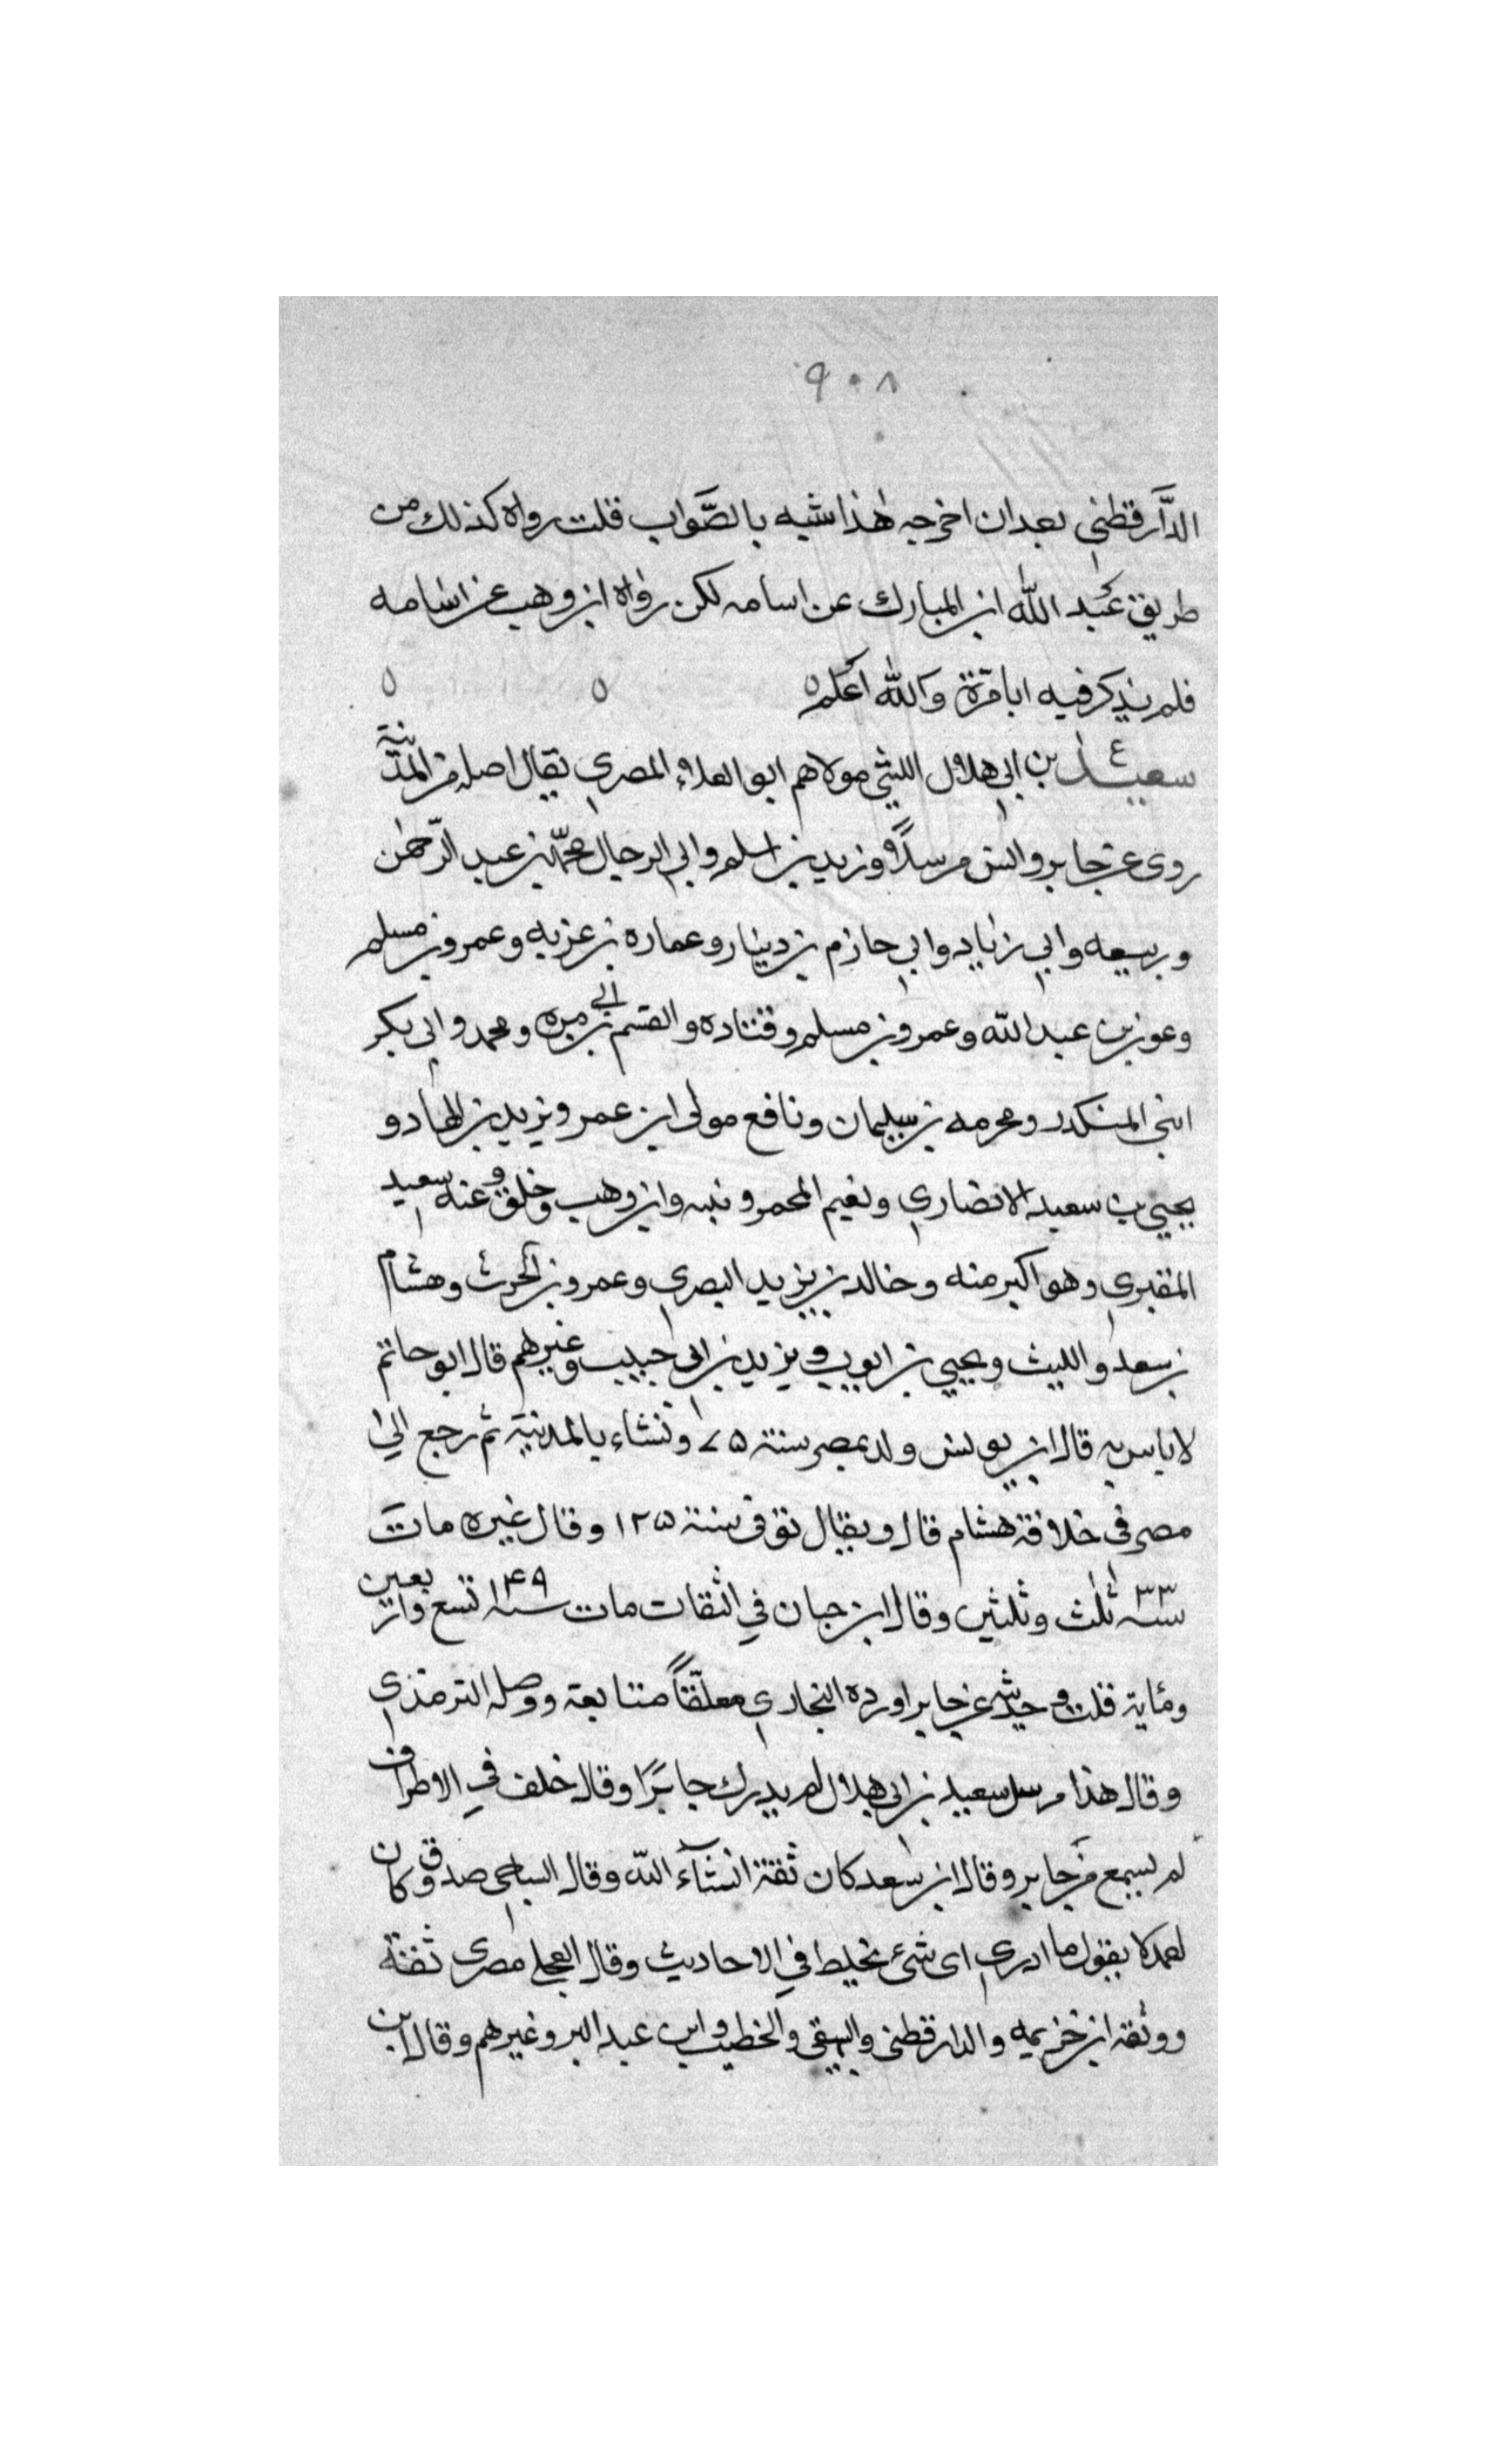 ٩٠٨
الدَّارقطني بعد ان اخرجه هٰذا شبه بالصَّواب قلت رواه كذلك من
طريق عَبد الله ابن المبارك عن اسامه لكن رواه ابن وهب عن اسامه
فلم يذكر فيه ابا مرّة والله اعلم ٥ ٥ ٥
ع
سعيد بن ابي هلال الليثي مولاهم ابو العلاء المصري يقال اصله من المدينة
روى عن جابر وانس مرسلاً وزيد بن اسلم وابي الرجال محمّد بن عبد الرّحمٰن
وربيعه وابي زياد وابي حازم بن دينار وعماره بن غزيه وعمرو بن مسلم
وعون بن عبد الله وعمرو بن مسلم وقتاده والقسم بن ابي مره ومحمد وابي بكر
ابني المنكدر ومحرمه بن سليمان ونافع مولى ابن عمر ويزيد بن الهاد و
يحيي بن سعيد الانصاري ونعيم المحمر ونبيه وابن وهب وخلق وعنه سعيد
المقبري وهو اكبر منه وخالد بن يزيد البصري وعمرو بن الحرث وهشام
بن سعد والليث ويحيي بن ايوب ويزيد بن ابي حبيب وغيرهم قال ابو حاتم
لا باس به قال ابن يونس ولد بمصر سنة ٧٥ ونشاء بالمدنية ثم رجع الي
مصر في خلافة هشام قال ويقال توفى سنة ١٢٥ وقال غيره مات
سنة ٣٣ ثلٰث وثلثين وقال ابن حبان في الثقات مات سنة ١٤٩ تسع واربعين
ومٔاية قلت وحديثه عن جابر اورده البخاري معلّقاً متابعة ووصله الترمذي
وقال هذا مرسل سعيد بن ابي هلال لم يدرك جابرًا وقال خلف في الاطراف
لم يسمع من جابر وقال ابن سعد كان ثقة انشآء الله وقال الساجي صدوق كان
احمد يقول ما ادري اى شئ يخلط في الاحاديث وقال العجلي مصري ثقة
ووثقه ابن خزيمه والدارقطنى والبيهقى والخطيب وابن عبد البر وغيرهم وقال ابن